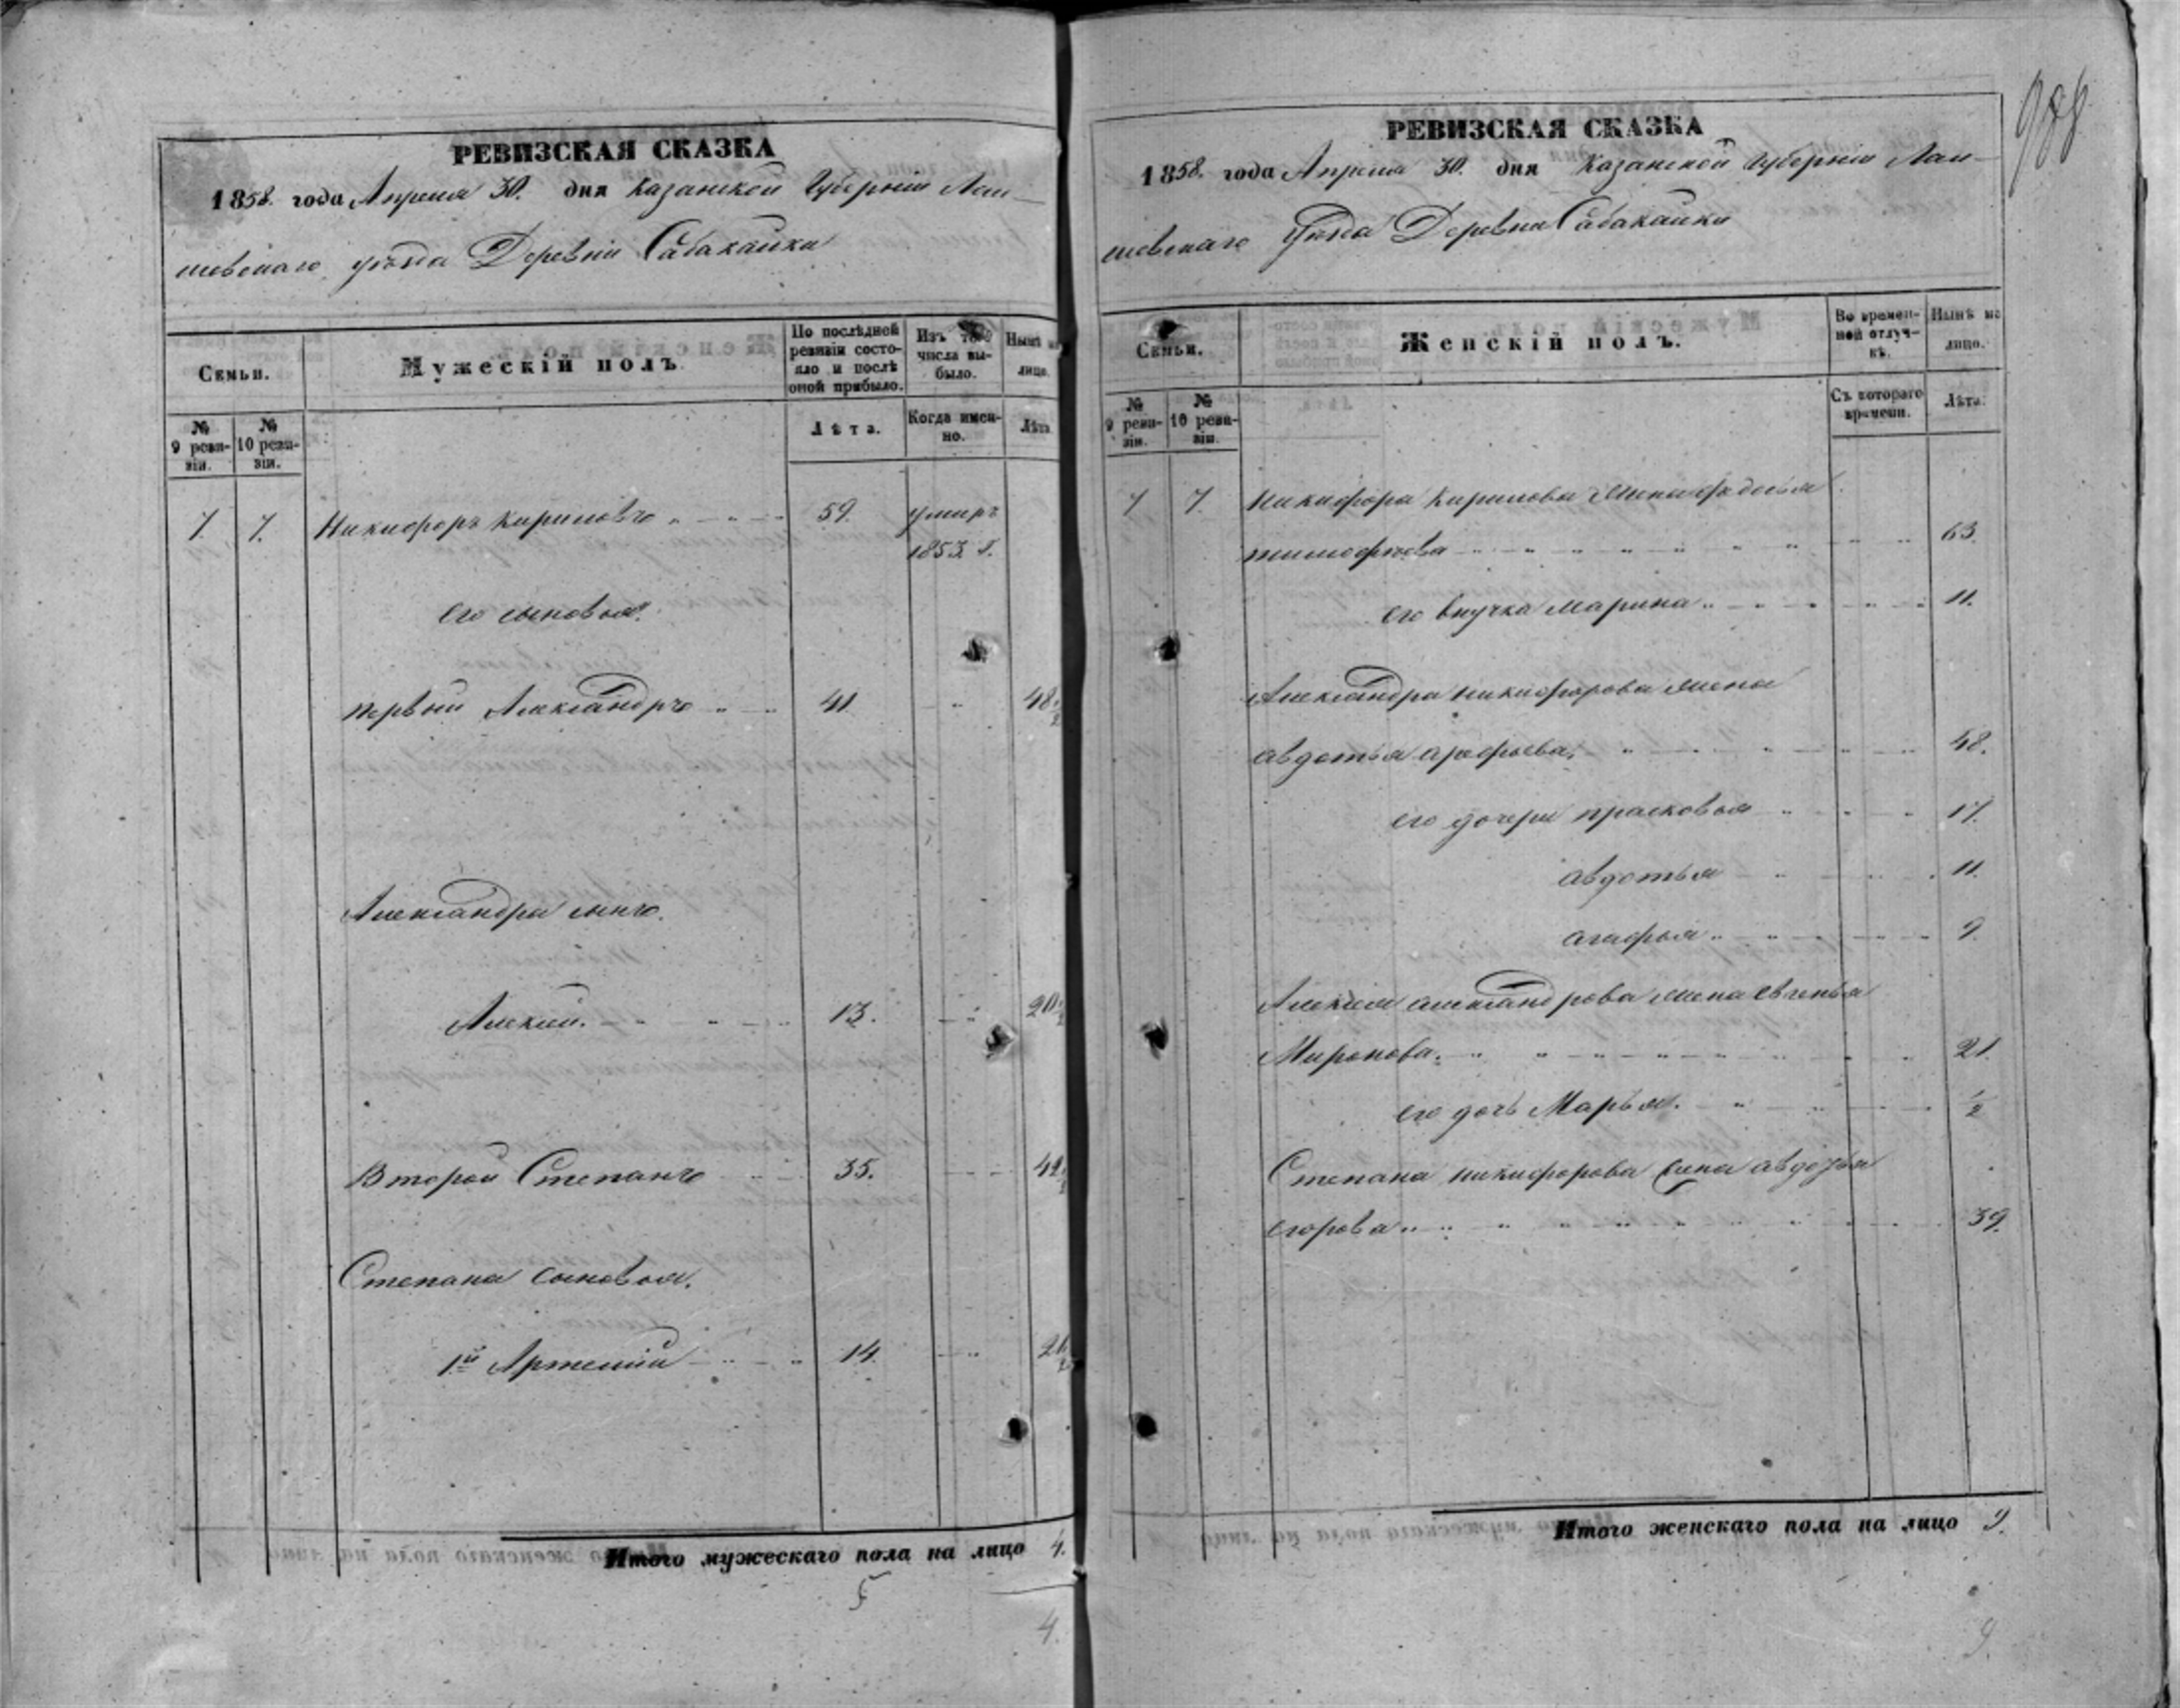 988
РЕВИЗСКАЯ СКАЗКА
1858. года Апреля 30. дня Казанской Губерніи Лаи-
шевскаго уѣзда Деревни Сабакайки
Семьи.
Мужескій полъ.
По послѣдней ревизіи состояло и послѣ оной прибыло.
Изъ того числа выбыло.
Нынѣ на лицо.
№ 9 ревизіи.
№ 10 ревизіи.
Лѣта.
Когда именно.
Лѣта
7. 7. Никифоръ Кириловъ 59. умиръ
1853 г.
его сыновья:
первый Александръ 41 48 1/2
Александра сынъ.
Алексей. 13. 20 1/2
Второй Степанъ 35. 42 1/2
Степана сыновья.
1й Артемий 14. 21 1/2
Итого мужескаго пола на лицо 4.
5
4.
РЕВИЗСКАЯ СКАЗКА
1858. года Апреля 30. дня Казанской Губерніи Лаи-
шевскаго Уѣзда Деревни Сабакайки
Семьи.
Женскій полъ.
Во временной отлучкѣ.
Нынѣ на лицо.
№ 9 ревизіи.
№ 10 ревизіи.
Съ котораго времени.
Лѣта.
7 7. Никифора Кирилова жена Федосья
тимофѣева 63.
его внучка Марина 11.
Александра никифорова жена
авдотья арефьева. 48.
его дочери прасковья 17.
авдотья 11.
агафья 9
Алексея александрова жена евгенья
Миронова. 21.
его дочь Марья. 1/2
Степана никифорова жена авдотья
егорова 39.
Итого женскаго пола на лицо 9.
9.